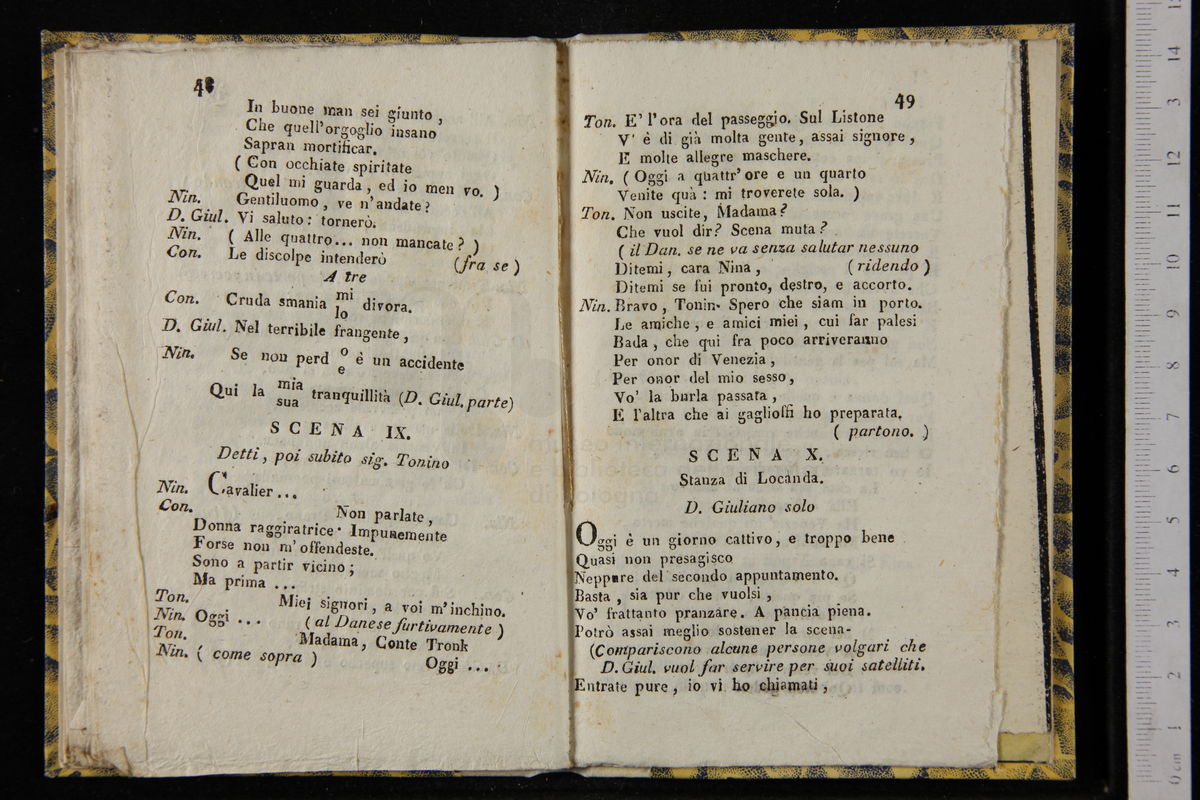 48
In buone man sei giunto ,
Che quell'orgoglio insano
Sapran mortificar.
( Con occhiate spiritate
Quel mi guarda , ed io men vo. )
Nin. Gentiluomo , ve n'andate ?
D. Giul. Vi saluto : tornerò.
Nin. ( Alle quattro... non mancate ? )
Con. Le discolpe intenderò (fra se )
A tre
Con. Cruda smania mi/lo divora.
D. Giul. Nel terribile frangente ,
Nin. Se non perd o/e è un accidente
Qui la mia/sua tranquillità (D. Giul. parte)
SCENA IX.
Detti , poi subito sig. Tonino
Nin. Cavalier ...
Con. Non parlate ,
Donna raggiratrice. Impunemente
Forse non m' offendeste.
Sono a partir vicino ;
Ma prima ...
Ton. Miei signori , a voi m'inchino.
Nin. Oggi ... ( al Danese furtivamente )
Ton. Madama, Conte Tronk
Nin. ( come sopra ) Oggi ...
49
Ton. E' l'ora del passeggio. Sul Listone
V' è di già molta gente, assai signore ,
E molte allegre maschere.
Nin. ( Oggi a quattr' ore e un quarto
Venite quà : mi troverete sola. )
Ton. Non uscite, Madama ?
Che vuol dir ? Scena muta ?
( il Dan. se ne va senza salutar nessuno
Ditemi , cara Nina , ( ridendo )
Ditemi se fui pronto, destro, e accorto.
Nin. Bravo , Tonin. Spero che siam in porto.
Le amiche , e amici miei , cui far palesi
Bada , che qui fra poco arriveranno
Per onor di Venezia ,
Per onor del mio sesso ,
Vo' la burla passata ,
E l'altra che ai gaglioffi ho preparata.
( partono. )
SCENA X.
Stanza di Locanda.
D. Giuliano solo
Oggi è un giorno cattivo, e troppo bene
Quasi non presagisco
Neppure del secondo appuntamento.
Basta , sia pur che vuolsi ,
Vo' frattanto pranzare. A pancia piena.
Potrò assai meglio sostener la scena-
(Compariscono alcune persone volgari che
D. Giul. vuol far servire per suoi satelliti.
Entrate pure , io vi ho chiamati ,